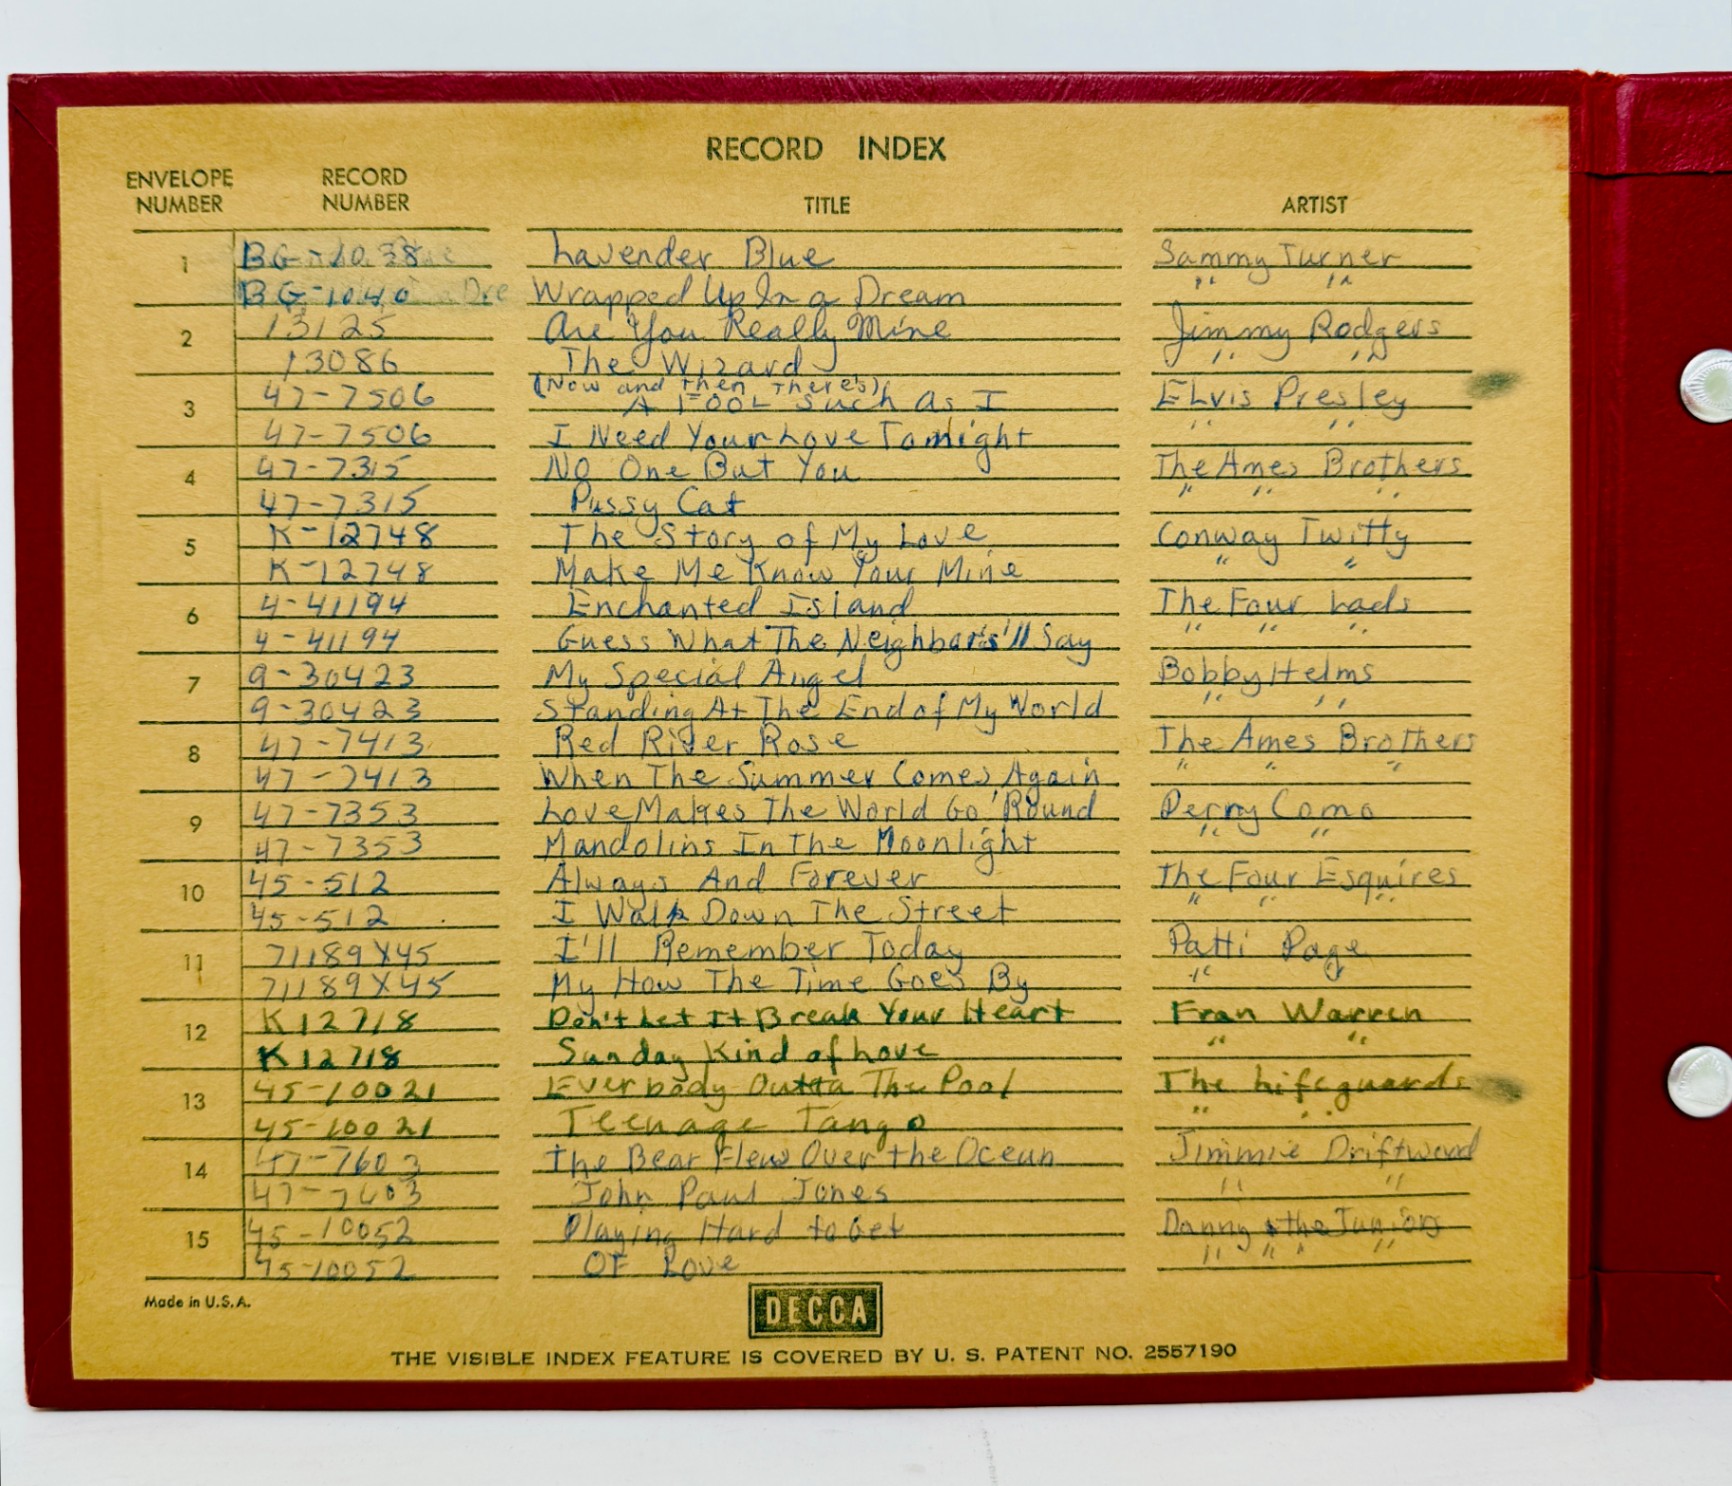 RECORD INDEX
ENVELOPE NUMBER RECORD NUMBER TITLE ARTIST
1 BG-1038 Lavender Blue Sammy Turner
BG-1040 Wrapped Up In a Dream " "
2 13125 Are You Really Mine Jimmy Rodgers
13086 The Wizard " "
(Now and then There's)
3 47-7506 A FOOL Such As I ELvis Presley
47-7506 I Need Your Love Tonight " "
4 47-7315 NO One But You The Ames Brothers
47-7315 Pussy Cat " " "
5 K-12748 The Story of My Love Conway Twitty
K-12748 Make Me Know Your Mine " "
6 4-41194 Enchanted Island The Four Lads
4-41194 Guess What The Neighbors'll Say " " "
7 9-30423 My Special Angel Bobby Helms
9-30423 Standing At The End of My World " "
8 47-7413 Red River Rose The Ames Brothers
47-7413 When The Summer Comes Again " " "
9 47-7353 Love Makes The World Go 'Round Perry Como
47-7353 Mandolins In The Moonlight " "
10 45-512 Always And Forever The Four Esquires
45-512 I Walk Down The Street " " "
11 71189X45 I'll Remember Today Patti Page
71189X45 My How The Time Goes By "
12 K12718 Don't Let It Break Your Heart Fran Warren
K12718 Sunday Kind of Love " "
13 45-10021 Everbody Outta The Pool The Lifeguards
45-10021 Teenage Tango " "
14 47-7603 The Bear Flew Over the Ocean Jimmie Driftwood
47-7603 John Paul Jones " "
15 45-10052 Playing Hard to Get Danny & the Juniors
45-10052 OF Love " " " "
Made in U.S.A.
DECCA
THE VISIBLE INDEX FEATURE IS COVERED BY U. S. PATENT NO. 2557190